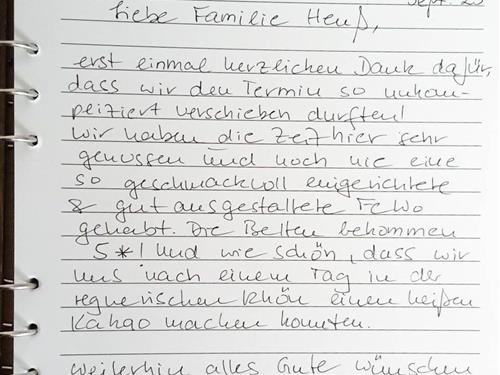 Sept. 20
Liebe Familie Heuß,
erst einmal herzlichen Dank dafür,
dass wir den Termin so unkom-
pliziert verschieben durften!
Wir haben die Zeit hier sehr
genossen und noch nie eine
so geschmackvoll eingerichtete
& gut ausgestattete FeWo
gehabt. Die Betten bekommen
5*! Und wie schön, dass wir
uns nach einem Tag in der
regnerischen Rhön einen heißen
Kakao machen konnten.
Weiterhin alles Gute wünschen